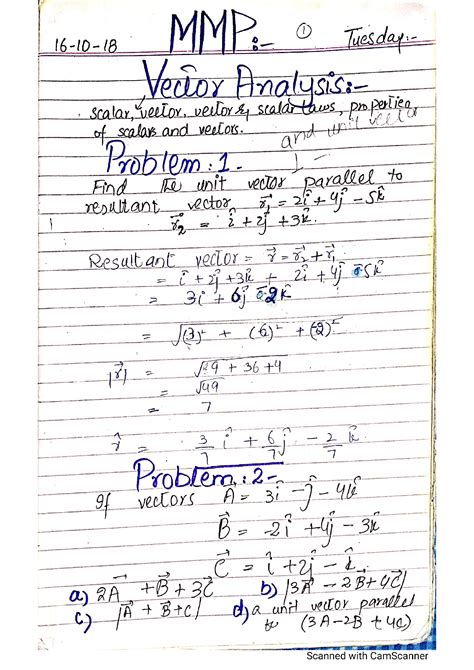 16-10-18 MMP:- ① Tuesday:-
Vector Analysis:-
scalar, vector, vector & scalar laws, properties
of scalars and vectors. and unit vector
Problem: 1-
Find the unit vector parallel to
resultant vector r⃗₁ = 2î + 4ĵ - 5k̂
r⃗₂ = î + 2ĵ + 3k̂.
Resultant vector = r⃗ = r⃗₂ + r⃗₁
= î + 2ĵ + 3k̂ + 2î + 4ĵ - 5k̂
= 3î + 6ĵ - 2k̂
= √(3)² + (6)² + (-2)²
|r⃗| = √9 + 36 + 4
= √49
= 7
r̂ = 3/7 î + 6/7 ĵ - 2/7 k̂
Problem: 2-
If vectors A⃗ = 3î - ĵ - 4k̂
B⃗ = -2î + 4ĵ - 3k̂
C⃗ = î + 2ĵ - k̂.
a) 2A⃗ + B⃗ + 3C⃗ b) |3A⃗ - 2B⃗ + 4C⃗|
c) |A⃗ + B⃗ + C| d) a unit vector parallel
to (3A - 2B + 4C)
Scanned with CamScanner